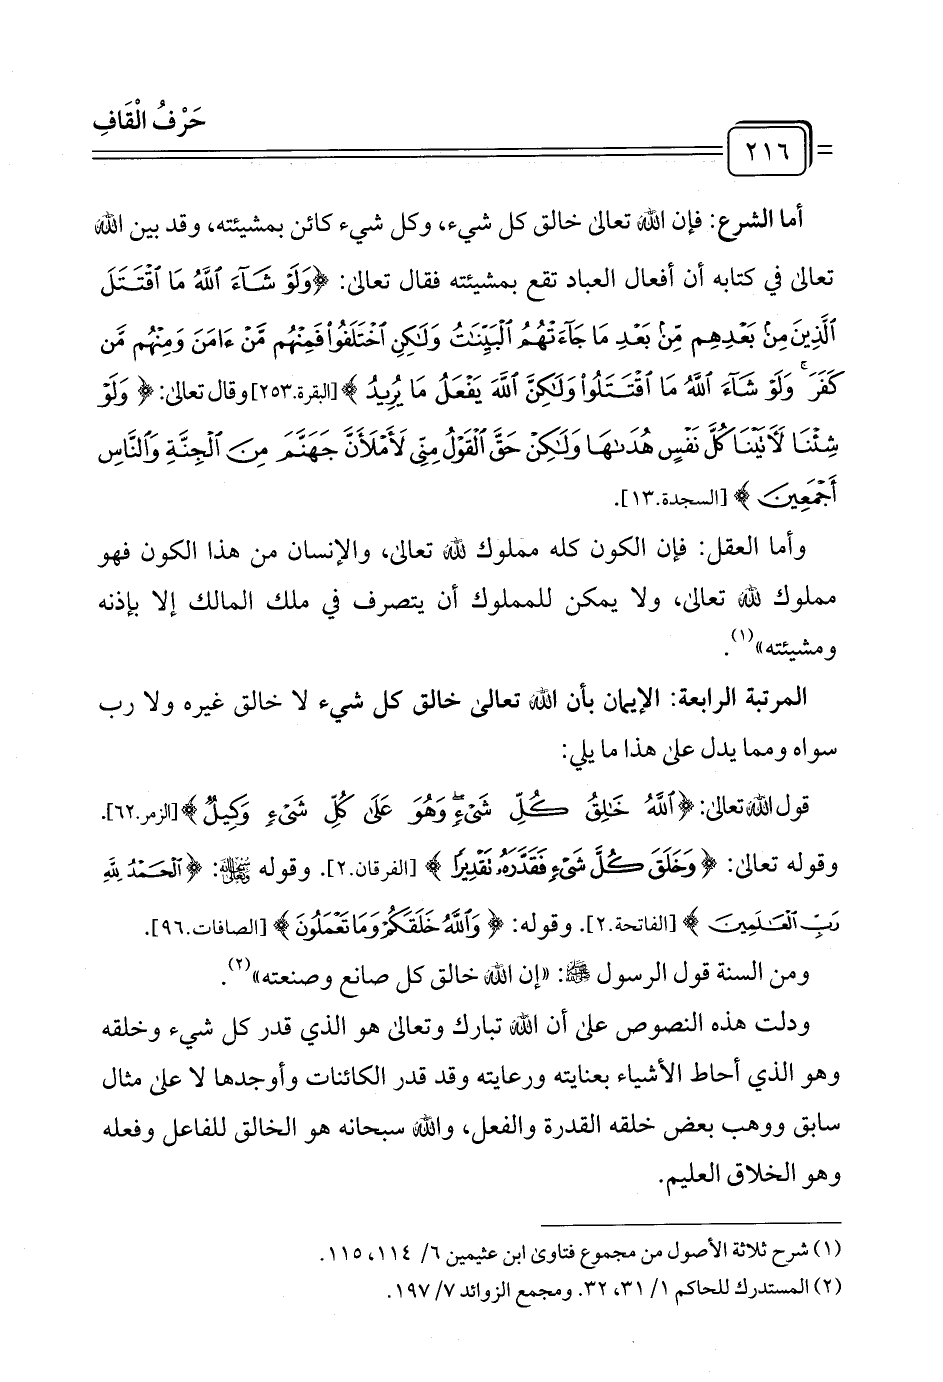 حَرْفُ الْقَافِ
٢١٦
أما الشرع: فإن الله تعالى خالق كل شيء، وكل شيء كائن بمشيئته، وقد بين الله
تعالى في كتابه أن أفعال العباد تقع بمشيئته فقال تعالى: ﴿وَلَوْ شَآءَ ٱللَّهُ مَا ٱقْتَتَلَ
ٱلَّذِينَ مِنۢ بَعْدِهِم مِّنۢ بَعْدِ مَا جَآءَتْهُمُ ٱلْبَيِّنَٰتُ وَلَٰكِنِ ٱخْتَلَفُوا۟ فَمِنْهُم مَّنْ ءَامَنَ وَمِنْهُم مَّن
كَفَرَ ۚ وَلَوْ شَآءَ ٱللَّهُ مَا ٱقْتَتَلُوا۟ وَلَٰكِنَّ ٱللَّهَ يَفْعَلُ مَا يُرِيدُ﴾ [البقرة.٢٥٣] وقال تعالى: ﴿وَلَوْ
شِئْنَا لَءَاتَيْنَا كُلَّ نَفْسٍ هُدَىٰهَا وَلَٰكِنْ حَقَّ ٱلْقَوْلُ مِنِّى لَأَمْلَأَنَّ جَهَنَّمَ مِنَ ٱلْجِنَّةِ وَٱلنَّاسِ
أَجْمَعِينَ﴾ [السجدة.١٣].
وأما العقل: فإن الكون كله مملوك لله تعالى، والإنسان من هذا الكون فهو
مملوك لله تعالى، ولا يمكن للمملوك أن يتصرف في ملك المالك إلا بإذنه
ومشيئته»(١).
المرتبة الرابعة: الإيمان بأن الله تعالى خالق كل شيء لا خالق غيره ولا رب
سواه ومما يدل على هذا ما يلي:
قول الله تعالى: ﴿ٱللَّهُ خَٰلِقُ كُلِّ شَىْءٍ ۖ وَهُوَ عَلَىٰ كُلِّ شَىْءٍ وَكِيلٌ﴾ [الزمر.٦٢].
وقوله تعالى: ﴿وَخَلَقَ كُلَّ شَىْءٍ فَقَدَّرَهُۥ تَقْدِيرًا﴾ [الفرقان.٢]. وقوله ﷻ: ﴿ٱلْحَمْدُ لِلَّهِ
رَبِّ ٱلْعَٰلَمِينَ﴾ [الفاتحة.٢]. وقوله: ﴿وَٱللَّهُ خَلَقَكُمْ وَمَا تَعْمَلُونَ﴾ [الصافات.٩٦].
ومن السنة قول الرسول ﷺ: «إن الله خالق كل صانع وصنعته»(٢).
ودلت هذه النصوص على أن الله تبارك وتعالى هو الذي قدر كل شيء وخلقه
وهو الذي أحاط الأشياء بعنايته ورعايته وقد قدر الكائنات وأوجدها لا على مثال
سابق ووهب بعض خلقه القدرة والفعل، والله سبحانه هو الخالق للفاعل وفعله
وهو الخلاق العليم.
(١) شرح ثلاثة الأصول من مجموع فتاوى ابن عثيمين ٦/ ١١٤، ١١٥.
(٢) المستدرك للحاكم ١/ ٣١، ٣٢. ومجمع الزوائد ٧/ ١٩٧.